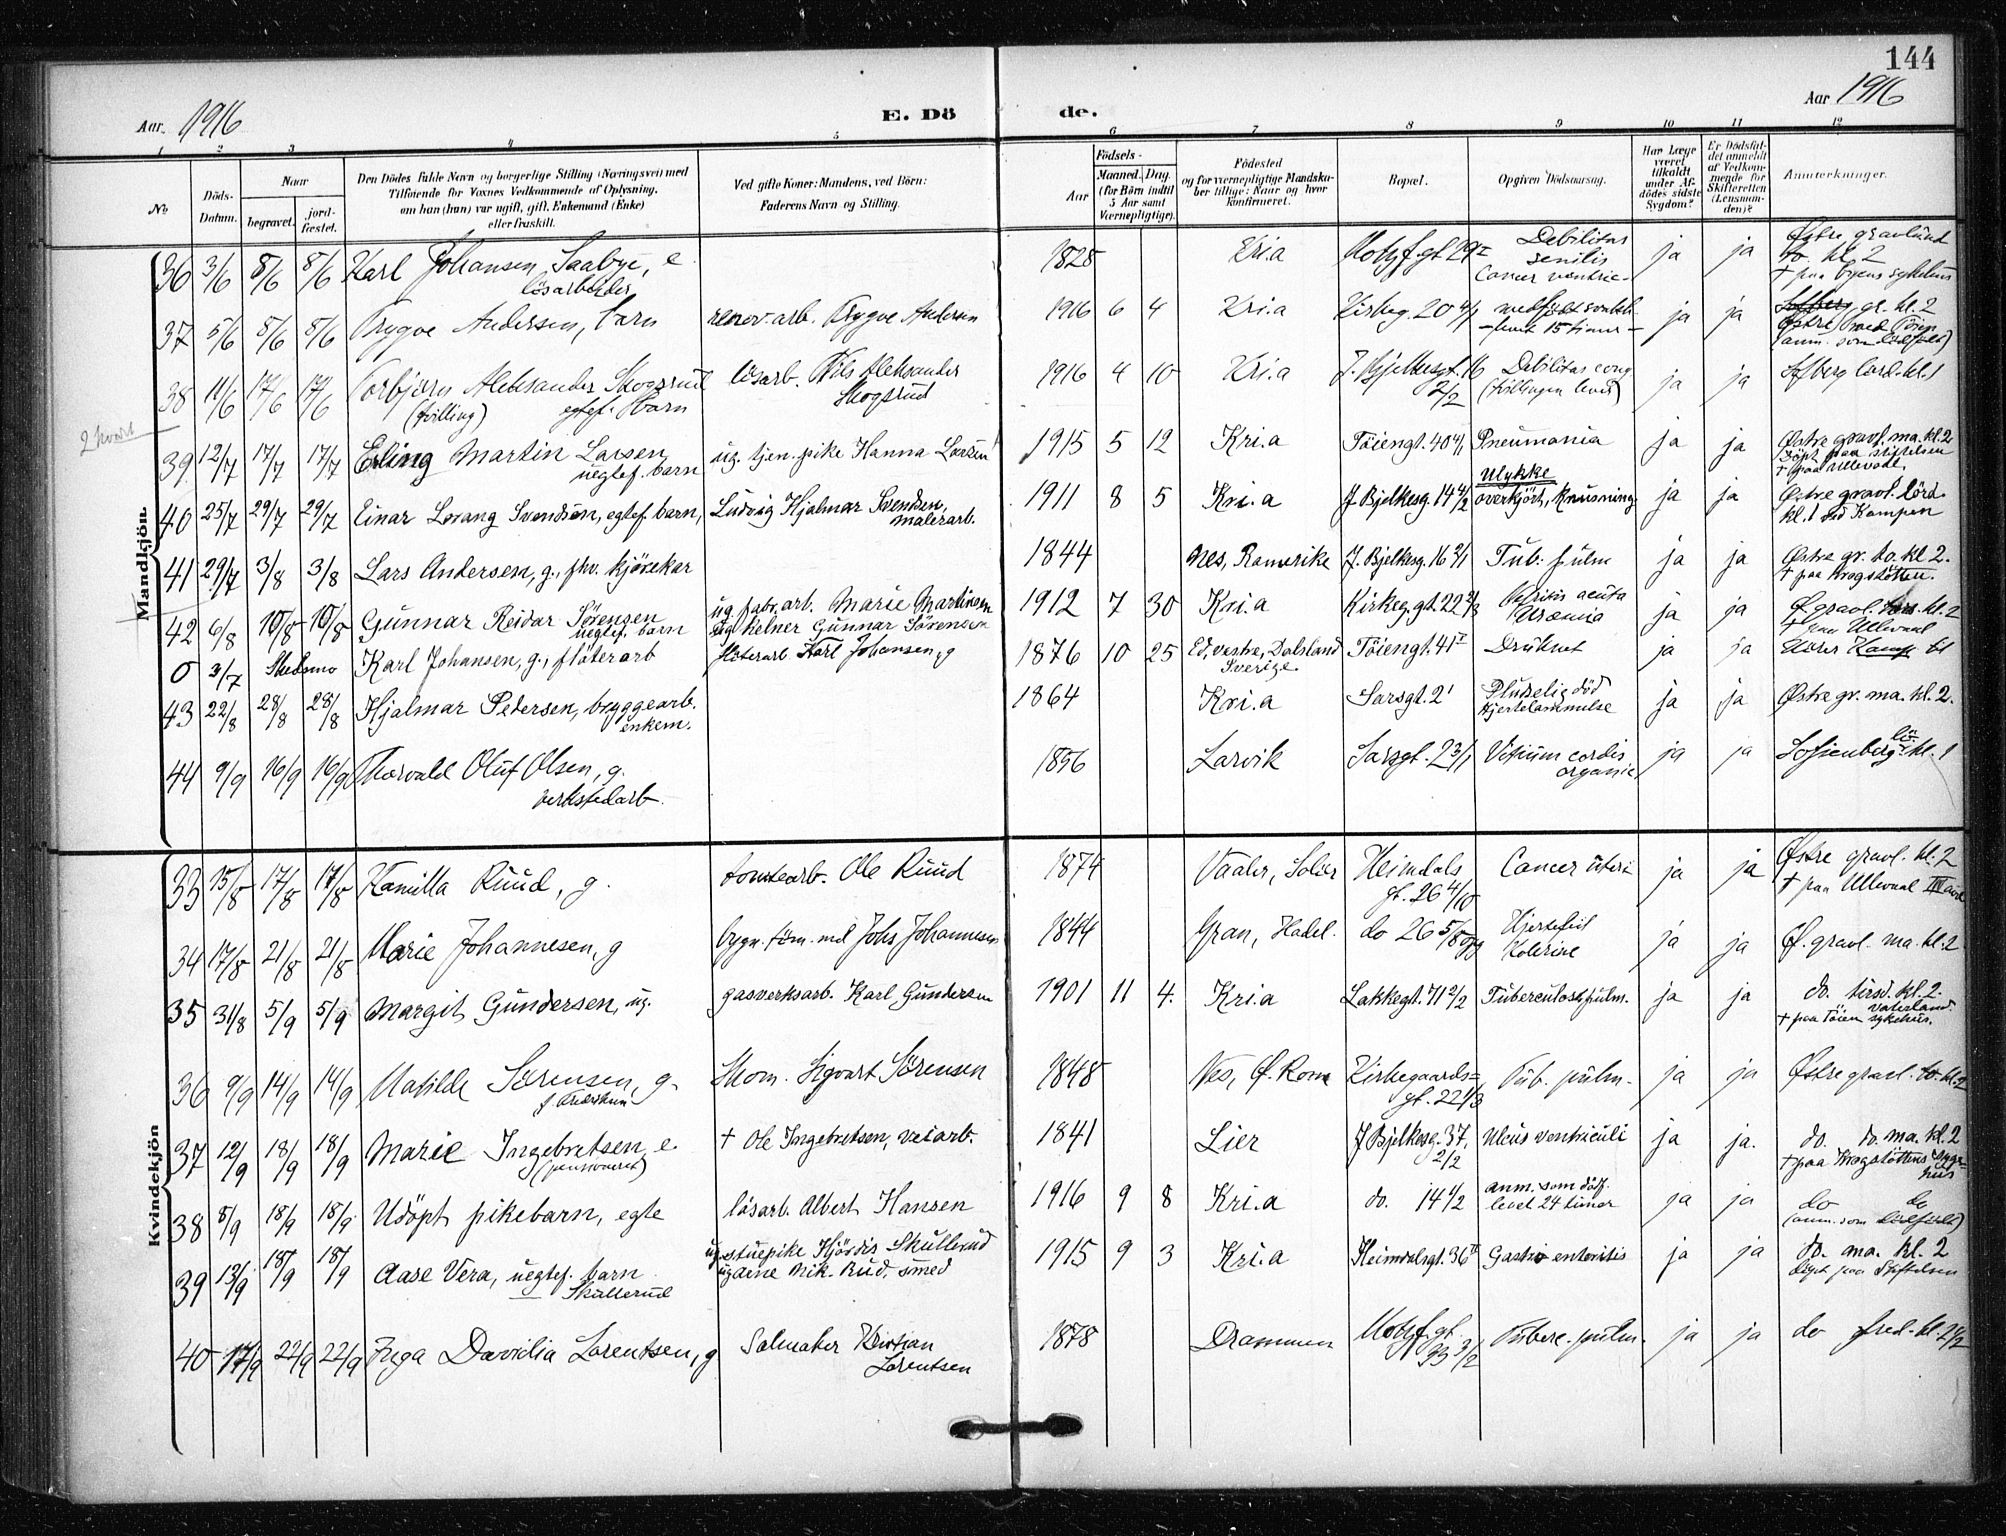 144
Aar. 1916
E. Dö de.
Aar 1916
1 2 3 4 5 6 7 8 9 10 11 12
No
Döds-Datum.
Naar
begravet.
jordfæstet.
Den Dödes fulde Navn og borgerlige Stilling (Næringsvei) med
Tilföiende for Voxnes Vedkommende af Oplysning,
om han (hun) var ugift, gift, Enkemand (Enke)
eller fraskilt.
Ved gifte Koner: Mandens, ved Börn:
Faderens Navn og Stilling.
Födsels-
Aar
Maaned. Dag.
(for Börn indtil
5 Aar samt
Værnepligtige).
Födested
og for værnepligtige Mandskaber tillige: Naar og hvor
konfirmeret.
Bopæl.
Opgiven Dödsaarsag.
Har Læge
været
tilkaldt
under Afdödes sidste
Sygdom?
Er Dödsfaldet anmeldt
af Vedkommende for
Skifteretten
(Lensmanden)?
Anmerkninger.
Mandkjön.
36 3/6 8/6 8/6 Karl Johansen Saabye, e. lösarbeider 1828 Kri.a Motzf.gt 29 I Debilitas senilis Cancer ventric. ja ja Østre gravlund to. kl. 2 † paa byens sykehus
37 5/6 8/6 8/6 Trygve Andersen, barn renov.arb. Trygve Andersen 1916 6 4 Kri.a Kirkeg. 20 4/1 levet 15 timer ja ja Sofberg gr. kl. 2 Østre (anm. som dödfödt)
38 11/6 17/6 17/6 Torbjörn Aleksander Skogsrud (tvilling) egtef. barn lösarb. Nils Aleksander Skogsrud 1916 4 10 Kri.a J. Bjelkesgt. 16 2/2 Debilitas cong (tvillingen lever) ja ja Sofberg lörd. kl. 1
2 kvart
39 12/7 17/7 17/7 Erling Martin Larsen uegtef. barn ug. tjen.pike Hanna Larsen 1915 5 12 Kri.a Töiengt. 40 4/1 Pneumonia ja ja Østre gravl. ma. kl. 2 Döpt paa stiftelsen † paa Ullevaal.
40 25/7 29/7 29/7 Einar Lorang Svendsen, egtef. barn, Ludvig Hjalmar Svendsen, malerarb. 1911 8 5 Kri.a J Bjelkesg. 14 4/2 Ulykke overkjört, knusning ja ja Østre gravl. lörd. kl. 1 ved Kampen
41 29/7 3/8 3/8 Lars Andersen, g., fhv. kjörekar 1844 Nes, Romerike J. Bjelkesg. 16 2/1 Tub. pulm ja ja Østre gr. to. kl 2. † paa Krogstötten.
42 6/8 10/8 10/8 Gunnar Reidar Sörensen uegtef. barn ug fabr.arb. Marie Martinsen ug kelner Gunnar Sörensen 1912 7 30 Kri.a Kirkeg.gt 22 2/3 Nefritis acuta Uræmia ja ja Ø. gravl. kl. 2 † paa Ullevaal
0 3/7 Skedsmo Karl Johansen, g., flöterarb flöterarb. Karl Johansen, g 1876 10 25 Ed, vestre, Dalsland Sverige Töiengt. 41 I Druknet ja ja
43 22/8 28/8 28/8 Hjalmar Petersen, bryggearb. enkem. 1864 Kri.a Sarsgt. 2 I Pludselig död Hjertelammelse ja ja Østre gr. ma. kl. 2.
44 9/9 16/9 16/9 Thorvald Oluf Olsen, g. verkstedarb. 1856 Larvik Sarsgt. 2 3/1 Vitium cordis organic ja ja Sofienberg lö. kl. 1
Kvindekjön
33 15/8 17/8 17/8 Kamilla Ruud, g. tomtearb. Ole Ruud 1874 Vaaler, Solör Heimdals gt. 26 4/10 Cancer uteri ja ja Østre gravl. kl. 2 † paa Ullevaal III avd
34 17/8 21/8 21/8 Marie Johannesen, g bygn.töm.md Johs Johannesen 1844 Gran, Hadel. do 26 5/8 Hjertefeil Kolerine ja ja Ø. gravl. ma. kl. 2
35 31/8 5/9 5/9 Margit Gundersen, ug. gasverksarb. Karl Gundersen 1901 11 4. Kri.a Lakkegt. 71 2/2 Tuberculos. pulm. ja ja do. tirsd. kl. 2. vaterland. † paa Töien sykehus.
36 9/9 14/9 14/9 Matilde Sörensen, g. Skom. Sigvart Sörensen 1848 Nes, Ø. Rom Kirkegaards-gt. 22 1/3 Tub. pulm. ja ja Østre gravl. to. kl. 2
37 12/9 18/9 18/9 Marie Ingebretsen, e. (pensioneret) † Ole Ingebretsen, veiarb. 1841 Lier J Bjelkesg. 37, 2/2 Ulcus ventriculi ja ja. do. do. ma. kl. 2 † paa Krogstöttens sygehus
38 8/9 18/9 18/9. Udöpt pikebarn, egte lösarb. Albert Hansen 1916 9 8 Kri.a do. 14 4/2 anm. som dödf. levet 24 timer ja ja do do (anm. som dödfödt)
39 13/9 18/9 18/9 Aase Vera, uegtef. barn Skullerud ug. stuepike Hjördis Skullerud Mik. Rud, smed 1915 9 3 Kri.a Heimdalsgt. 36 II Gastro enteritis ja ja do. ma. kl. 2 döpt paa Stiftelsen
40 17/9 22/9 22/9 Inga Davidia Lorentsen, g Salmaker Kristian Lorentsen 1878 Drammen Motzf.gt. 33 3/2 Tuberc. pulm. ja ja do fred. kl. 2 1/2